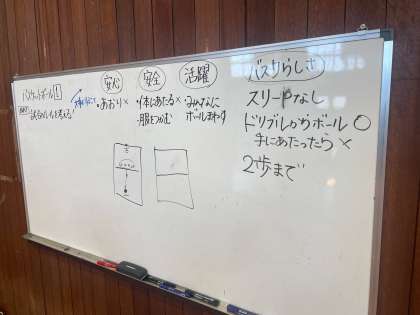 バスケットボール①
試合のルールを考える!
安心
・あおり×
安全
・体にあたる×
・服をつかむ
活躍
・みんなに
ボールまわす
バスケらしさ
スリーPなし
ドリブルからボール○
手にあたったら×
2歩まで